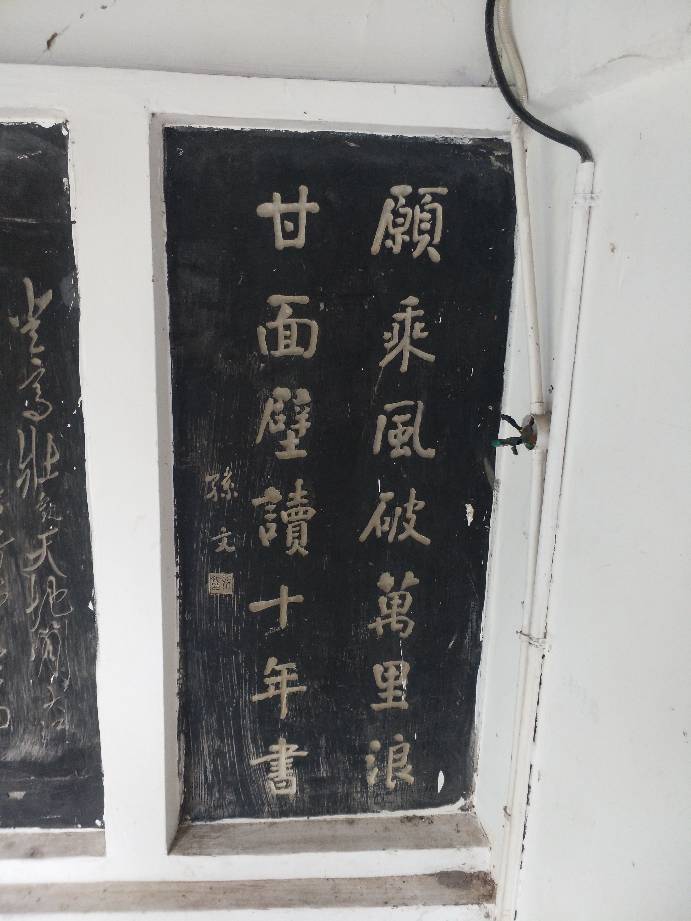 願乘風破萬里浪
甘面壁讀十年書
孫文
登高壯觀天地間